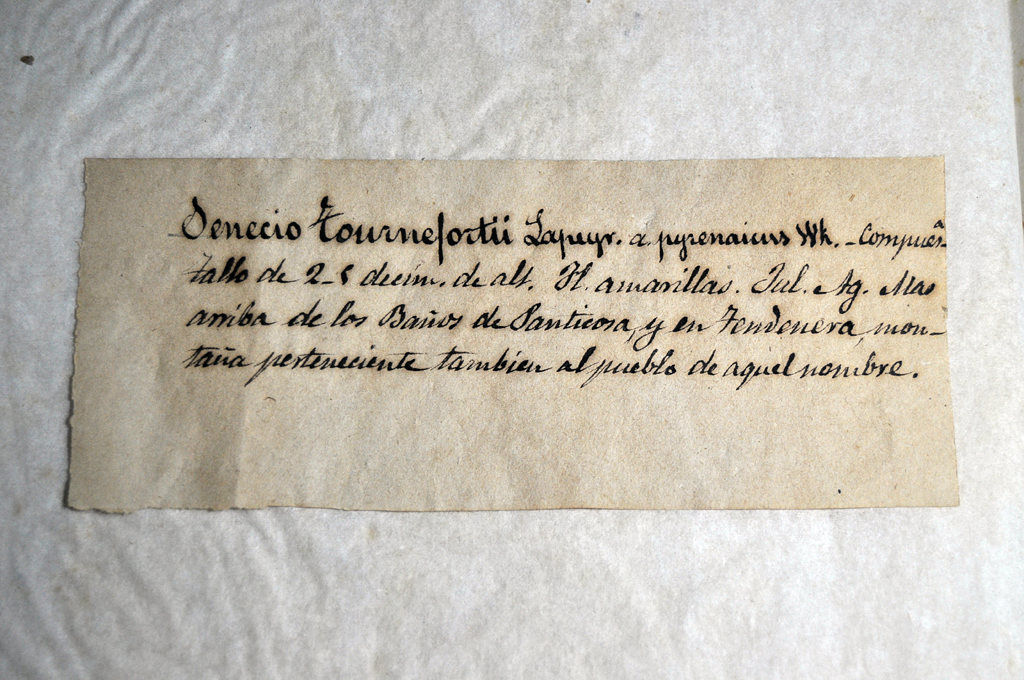 Senecio Tournefortii Lapeyr. a pyrenaicus Wk. - Compuesᵗᵃ
tallo de 2-5 decim. de alt. Fl. amarillas. Jul. Ag. Mas
arriba de los Baños de Panticosa, y en Tendenera, mon-
taña perteneciente tambien al pueblo de aquel nombre.